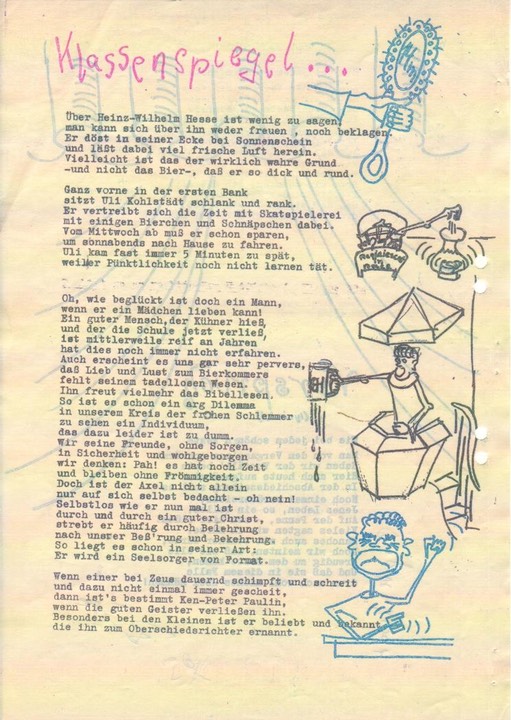 Klassenspiegel...
Über Heinz-Wilhelm Hesse ist wenig zu sagen,
man kann sich über ihn weder freuen , noch beklagen.
Er döst in seiner Ecke bei Sonnenschein
und läßt dabei viel frische Luft herein.
Vielleicht ist das der wirklich wahre Grund
-und nicht das Bier-, daß er so dick und rund.
Ganz vorne in der ersten Bank
sitzt Uli Kohlstädt schlank und rank.
Er vertreibt sich die Zeit mit Skatspielerei
mit einigen Bierchen und Schnäpschen dabei.
Vom Mittwoch ab muß er schon sparen,
um sonnabends nach Hause zu fahren.
Uli kam fast immer 5 Minuten zu spät,
weil er Pünktlichkeit noch nicht lernen tät.
Oh, wie beglückt ist doch ein Mann,
wenn er ein Mädchen lieben kann!
Ein guter Mensch,der Kühner hieß,
und der die Schule jetzt verließ,
ist mittlerweile reif an Jahren
hat dies noch immer nicht erfahren.
Auch erscheint es uns gar sehr pervers,
daß Lieb und Lust zum Bierkommers
fehlt seinem tadellosen Wesen.
Ihn freut vielmehr das Bibellesen.
So ist es schon ein arg Dilemma
in unserem Kreis der frohen Schlemmer
zu sehen ein Individuum,
das dazu leider ist zu dumm.
Wir seine Freunde, ohne Sorgen,
in Sicherheit und wohlgeborgen
wir denken: Pah! es hat noch Zeit
und bleiben ohne Frömmigkeit.
Doch ist der Axel nicht allein
nur auf sich selbst bedacht - oh nein!
Selbstlos wie er nun mal ist
durch und durch ein guter Christ,
strebt er häufig durch Belehrung
nach unsrer Beß'rung und Bekehrung.
So liegt es schon in seiner Art:
Er wird ein Seelsorger von Format.
Wenn einer bei Zeus dauernd schimpft und schreit
und dazu nicht einmal immer gescheit,
dann ist's bestimmt Ken-Peter Paulin,
wenn die guten Geister verließen ihn.
Besonders bei den Kleinen ist er beliebt und bekannt
die ihn zum Oberschiedsrichter ernannt.